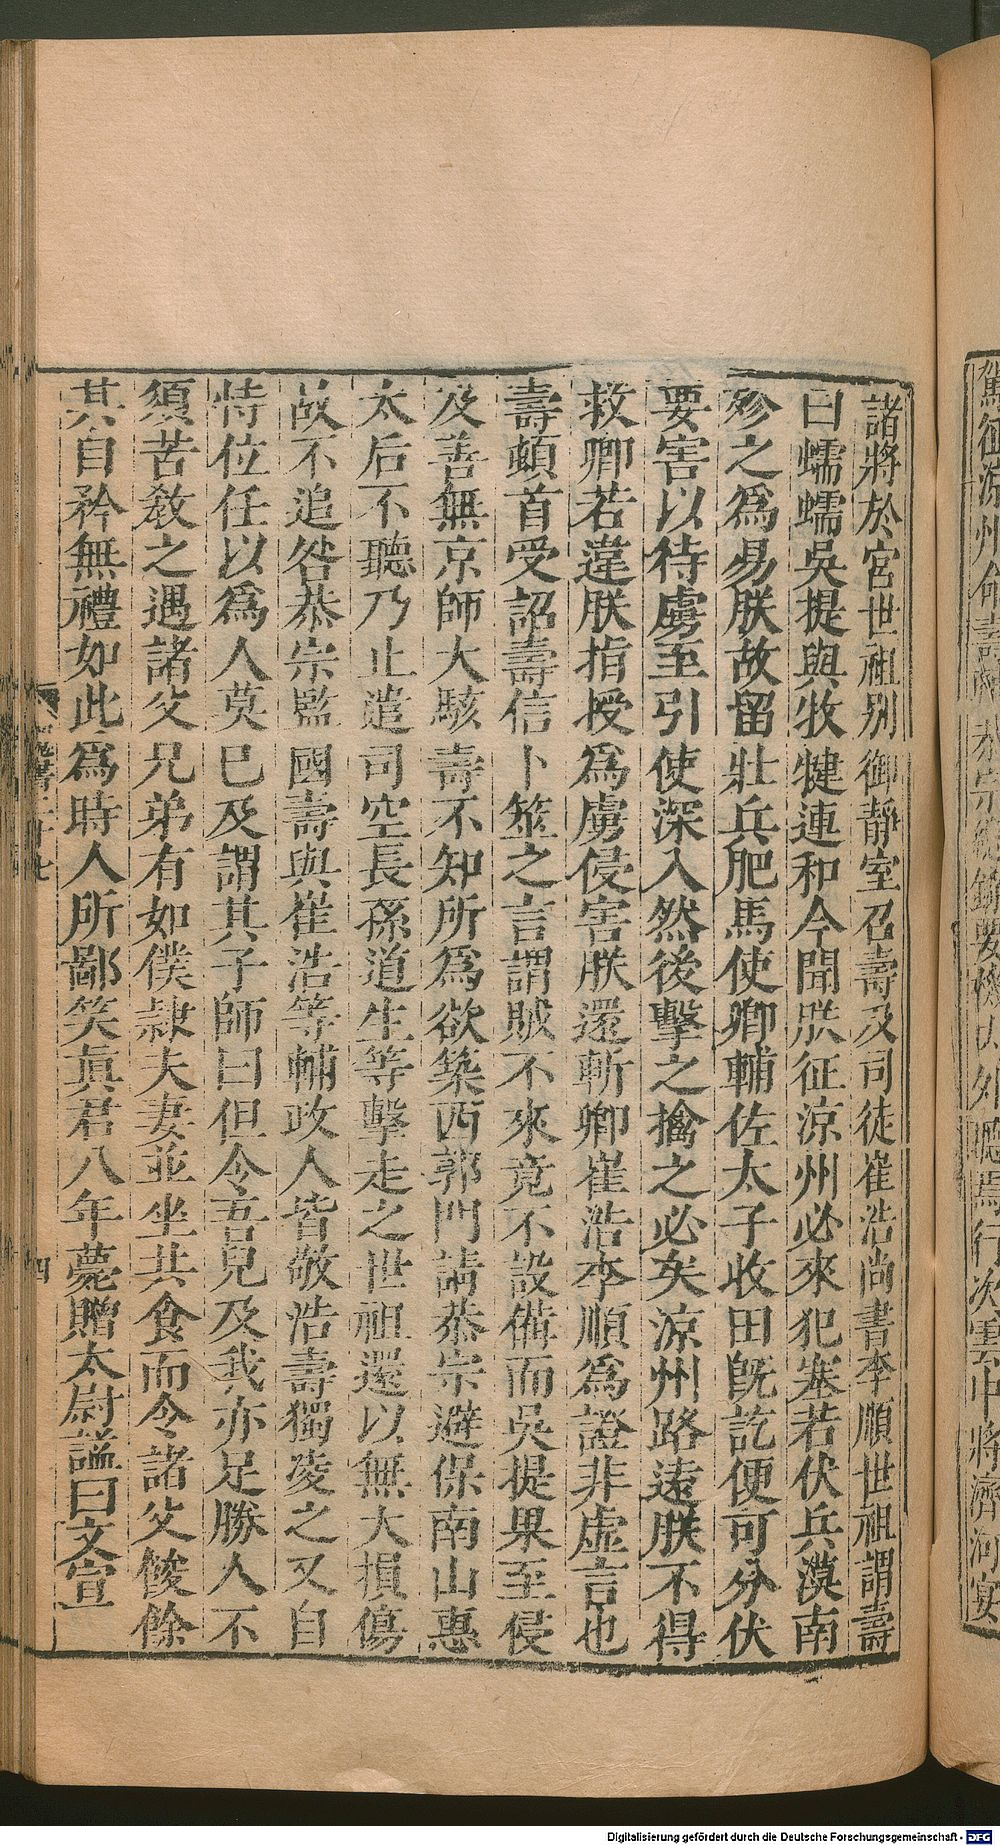 諸將於宮世祖別御靜室召壽及司徒崔浩尚書李順世祖謂壽
曰蠕蠕吳提與牧犍連和今聞朕征涼州必來犯塞若伏兵漠南
殄之為易朕故留壯兵肥馬使卿輔佐太子收田旣訖便可分伏
要害以待虜至引使深入然後擊之擒之必矣涼州路遠朕不得
救卿若違朕指授為虜侵害朕還斬卿崔浩李順為證非虛言也
壽頓首受詔壽信卜筮之言謂賊不來竟不設備而吳提果至侵
及善無京師大駭壽不知所為欲築西郭門請恭宗避保南山惠
太后不聽乃止遣司空長孫道生等擊走之世祖還以無大損傷
故不追咎恭宗監國壽與崔浩等輔政人皆敬浩壽獨凌之又自
恃位任以為人莫已及謂其子師曰但令吾兒及我亦足勝人不
須苦敎之遇諸父兄弟有如僕隸夫妻並坐共食而令諸父餕餘
其自矜無禮如此為時人所鄙笑眞君八年薨贈太尉謚曰文宣
四
Digitalisierung gefördert durch die Deutsche Forschungsgemeinschaft - DFG